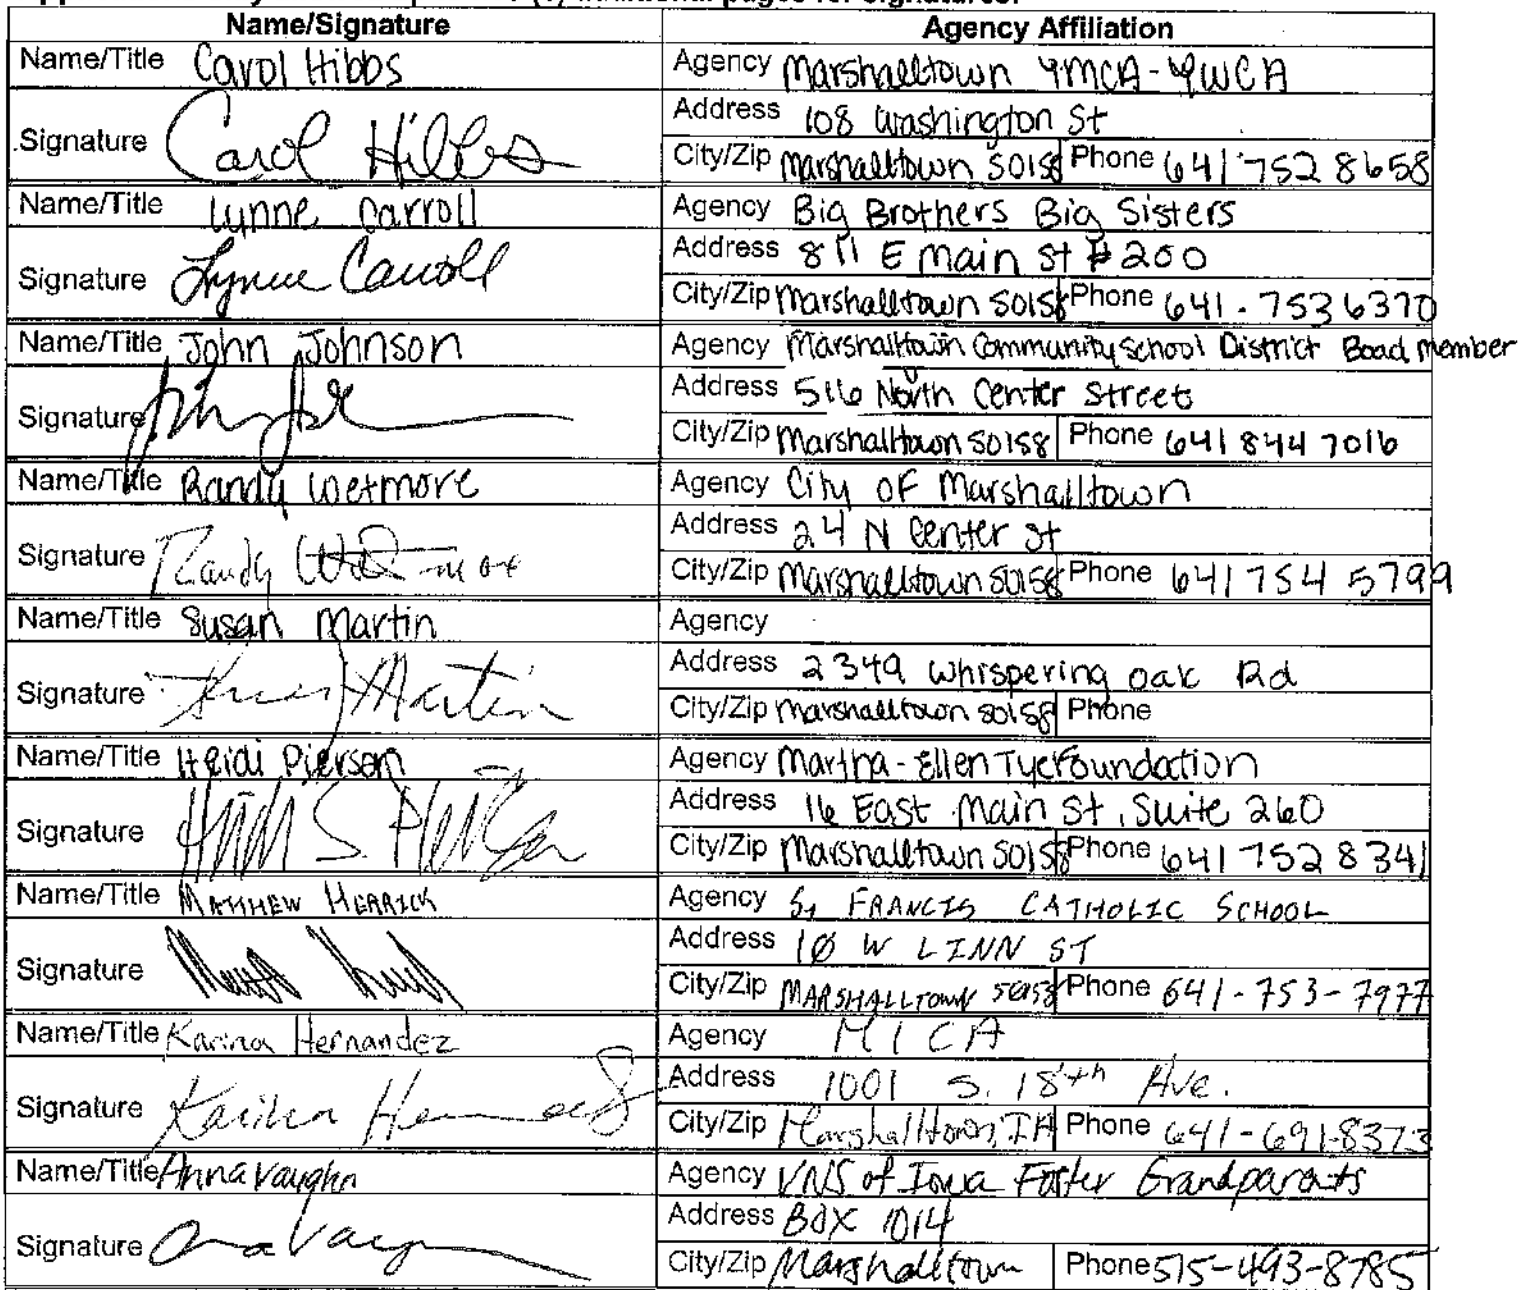 Name/Signature Agency Affiliation
Name/Title Carol Hibbs Agency Marshalltown YMCA-YWCA
Signature Carol Hibbs Address 108 Washington St
City/Zip Marshalltown 50158 Phone 641 752 8658
Name/Title Lynne Carroll Agency Big Brothers Big Sisters
Signature Lynne Carroll Address 811 E Main St #200
City/Zip Marshalltown 50158 Phone 641-753 6370
Name/Title John Johnson Agency Marshalltown Community School District Boad member
Signature Address 516 North Center Street
City/Zip Marshalltown 50158 Phone 641 844 7016
Name/Title Randy Wetmore Agency City OF Marshalltown
Signature Randy Wetmore Address 24 N Center St
City/Zip Marshalltown 50158 Phone 641 754 5799
Name/Title Susan Martin Agency
Signature Martin Address 2349 Whispering Oak Rd
City/Zip Marshalltown 50158 Phone
Name/Title Heidi Pierson Agency Martha-Ellen Tye Foundation
Signature Heidi S. Pierson Address 16 East Main St, Suite 260
City/Zip Marshalltown 50158 Phone 641 752 8341
Name/Title MATTHEW HERRICK Agency St FRANCIS CATHOLIC SCHOOL
Signature Address 10 W LINN ST
City/Zip MARSHALLTOWN 50158 Phone 641-753-7977
Name/Title Karina Hernandez Agency MICA
Signature Karina Address 1001 S. 18th Ave.
City/Zip Marshalltown, IA Phone 641-691-8373
Name/Title Anna Vaughn Agency VNS of Iowa Foster Grandparents
Signature Address BOX 1014
City/Zip Marshalltown Phone 515-493-8785